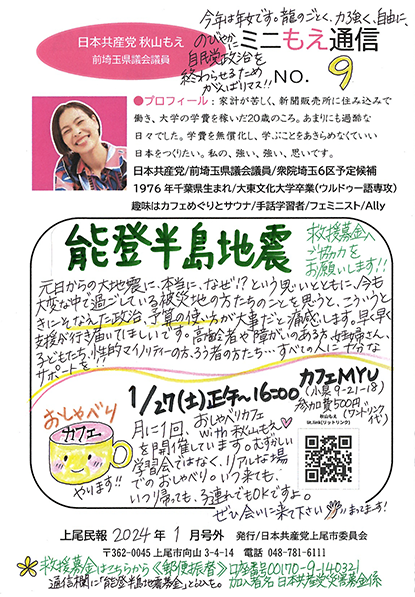 日本共産党 秋山もえ
前埼玉県議会議員
今年は年女です。龍のごとく、力強く、自由に、
のびやかに
自民党政治を
終わらせるため
がんばりマス!!
ミニもえ通信
NO. 9
●プロフィール：家計が苦しく、新聞販売所に住み込みで
働き、大学の学費を稼いだ20歳のころ。あまりにも過酷な
日々でした。学費を無償化し、学ぶことをあきらめなくていい
日本をつくりたい。私の、強い、強い、思いです。
日本共産党/前埼玉県議会議員/衆院埼玉6区予定候補
1976年千葉県生まれ/大東文化大学卒業(ウルドゥー語専攻)
趣味はカフェめぐりとサウナ/手話学習者/フェミニスト/Ally
能登半島地震
救援募金へ
ご協力を
お願いします!!
元日からの大地震に、本当に、なぜ!?という思いとともに、今も
大変な中で過ごしている被災地の方たちのことを思うと、こういうと
きにそなえた政治、予算の使い方が大事だと痛感します。早く早く
支援が行き届いてほしいです。高齢者や障がいのある方、妊婦さん、
子どもたち、性的マイノリティーの方、ろう者の方たち…すべての人に十分な
サポートを!!
おしゃべり
カフェ
やります!!
1/27(土)正午~16:00
カフェMYU
(小泉9-21-18)
参加費500円
(ワンドリンク
付)
秋山もえ
lit.link(リットリンク)
月に1回、おしゃべりカフェ
with秋山もえ
を開催しています。むずかしい
学習会ではなく、リアルな場
でのおしゃべり。いつ来ても、
いつ帰っても、3分でもOKですよ。
ぜひ会いに来て下さい
まってます!
上尾民報 2024年 1月号外 発行/日本共産党上尾市委員会
〒362-0045 上尾市向山3-4-14 電話 048-781-6111
救援募金はこちらから《郵便振替》口座番号00170-9-140321
通信欄に「能登半島地震募金」と記入を。加入者名 日本共産党災害募金係